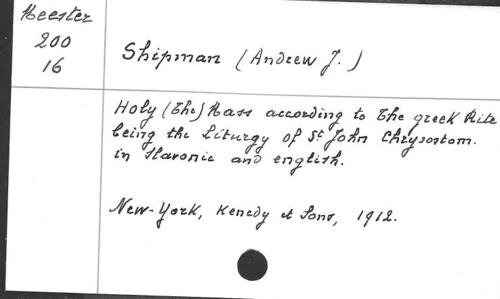 Meester
200
16
Shipman (Andrew J.)
Holy (The) Mass according to the greek Rite
being the Liturgy of St John Chrysostom.
in Slavonic and english.
New-York, Kenedy et Sons, 1912.